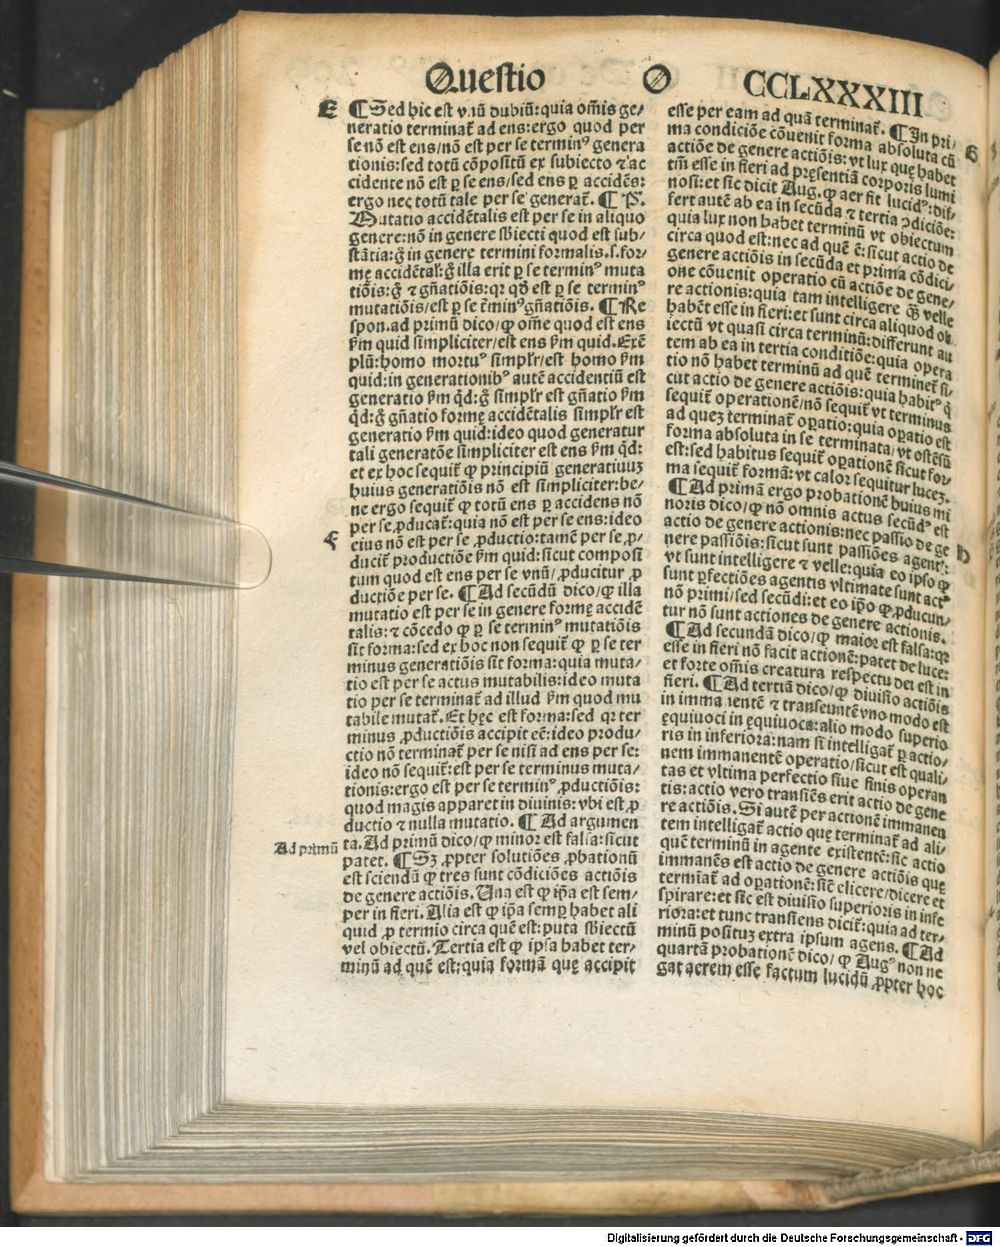 Questio O CCLXXXIII
E
¶ Sed hic est vnũ dubiũ: quia om̃is ge/
neratio terminat̃ ad ens: ergo quod per
se nõ est ens/nõ est per se terminꝰ genera
tionis: sed totũ cõpositũ ex subiecto ⁊ ac
cidente nõ est ꝑ se ens/sed ens ꝑ accidẽs:
ergo nec totũ tale per se generat̃. ¶ P.
Mutatio accidẽtalis est per se in aliquo
genere: nõ in genere sb̃iecti quod est sub/
stãtia: g̃ in genere termini formalis .s. for/
mę accidẽtal̃: g̃ illa erit ꝑ se terminꝰ muta
tiõis: g̃ ⁊ gñatiõis: qr qd̃ est ꝑ se terminꝰ
mutatiõis/est ꝑ se t̃minꝰ gñatiõis. ¶ Re
spon. ad primũ dico/ꝙ om̃e quod est ens
ẜm quid simpliciter/est ens ẜm quid. Exẽ
plũ: homo mortuꝰ simplr̃/est homo ẜm
quid: in generationibꝰ autẽ accidentiũ est
generatio ẜm qd̃: g̃ simplr̃ est gñatio ẜm
qd̃: g̃ gñatio formę accidẽtalis simplr̃ est
generatio ẜm quid: ideo quod generatur
tali generatõe simpliciter est ens ẜm qd̃:
et ex hoc sequit̃ ꝙ principiũ generatiuuꝫ
huius generatiõis nõ est simpliciter: be/
ne ergo sequit̃ ꝙ totũ ens ꝑ accidens nõ
per se ꝓducat̃: quia nõ est per se ens: ideo
F
eius nõ est per se ꝓductio: tamẽ per se ꝓ/
ducit̃ productiõe ẜm quid: sicut composi
tum quod est ens per se vnũ/ꝓducitur ꝓ
ductiõe per se. ¶ Ad secũdũ dico/ꝙ illa
mutatio est per se in genere formę accidẽ
talis: ⁊ cõcedo ꝙ ꝑ se terminꝰ mutatiõis
sit forma: sed ex hoc non sequit̃ ꝙ ꝑ se ter
minus generatiõis sit forma: quia muta/
tio est per se actus mutabilis: ideo muta
tio per se terminat̃ ad illud ẜm quod mu
tabile mutat̃. Et hęc est forma: sed qr ter
minus ꝓductiõis accipit eẽ: ideo produ/
ctio nõ terminat̃ per se nisi ad ens per se:
ideo nõ sequit̃: est per se terminus muta/
tionis: ergo est per se terminꝰ ꝓductiõis:
quod magis apparet in diuinis: vbi est ꝓ
ductio ⁊ nulla mutatio. ¶ Ad argumen
Ad primũ
ta. Ad primũ dico/ꝙ minor est falsa: sicut
patet. ¶ Sꝫ ꝓpter solutiões ꝓbationũ
est sciendũ ꝙ tres sunt cõdiciões actiõis
de genere actiõis. Una est ꝙ ip̃a est sem/
per in fieri. Alia est ꝙ ip̃a semꝑ habet ali
quid ꝓ termio circa quẽ est: puta sb̃iectũ
vel obiectũ. Tertia est ꝙ ipsa habet ter/
minũ ad quẽ est: quia formã quę accipit
esse per eam ad quã terminat̃. ¶ In pri/
G
ma condiciõe cõuenit forma absoluta cũ
actiõe de genere actiõis: vt lux quę habet
tm̃ esse in fieri ad pręsentiã corporis lumi
nosi: et sic dicit Aug. ꝙ aer fit lucidꝰ: dif/
fert autẽ ab ea in secũda ⁊ tertia ꝯdiciõe:
quia lux non habet terminũ vt obiectum
circa quod est: nec ad quẽ ẽ: sicut actio de
genere actiõis in secũda et prima cõdici/
one cõuenit operatio cũ actiõe de gene/
re actionis: quia tam intelligere q̃ꝫ velle
habẽt esse in fieri: et sunt circa aliquod ob
iectũ vt quasi circa terminũ: differunt au
tem ab ea in tertia conditiõe: quia opera
tio nõ habet terminũ ad quẽ terminet̃ si/
cut actio de genere actiõis: quia habitꝰ q̃
sequit̃ operationẽ/nõ sequit̃ vt terminus
ad queꝫ terminat̃ oꝑatio: quia oꝑatio est
forma absoluta in se terminata/vt ostẽsũ
est: sed habitus sequit̃ oꝑationẽ sicut for/
ma sequit̃ formã: vt calor sequitur luceꝫ.
¶ Ad primã ergo probationẽ huius mi
noris dico/ꝙ nõ omnis actus secũdꝰ est
actio de genere actionis: nec passio de ge
H
nere passiõis: sicut sunt passiões agentꝭ:
vt sunt intelligere ⁊ velle: quia eo ipso ꝙ
sunt ꝑfectiões agentis vltimate sunt actꝰ
nõ primi/sed secũdi: et eo ip̃o ꝙ ꝓducun/
tur nõ sunt actiones de genere actionis.
¶ Ad secundã dico/ꝙ maior est falsa: qr
esse in fieri nõ facit actionẽ: patet de luce:
et forte om̃is creatura respectu dei est in
fieri. ¶ Ad tertiã dico/ꝙ diuisio actiõis
in immanentẽ ⁊ transeuntẽ vno modo est
ęquiuoci in ęquiuoca: alio modo superio
ris in inferiora: nam si intelligat̃ ꝑ actio/
nem immanentẽ operatio/sicut est quali/
tas et vltima perfectio siue finis operan
tis: actio vero transiẽs erit actio de gene
re actiõis. Si autẽ per actionẽ immanen
tem intelligat̃ actio quę terminat̃ ad ali/
quẽ terminũ in agente existentẽ: sic actio
immanẽs est actio de genere actiõis quę
termiat̃ ad oꝑationẽ: sic̃ elicere/dicere et
spirare: et sic est diuisio superioris in infe
riora: et tunc transiens dicit̃: quia ad ter/
minũ posituꝫ extra ipsum agens. ¶ Ad
quartã probationẽ dico/ꝙ Augꝰ non ne
gat aerem esse factum lucidũ ꝓpter hoc
Digitalisierung gefördert durch die Deutsche Forschungsgemeinschaft - DFG